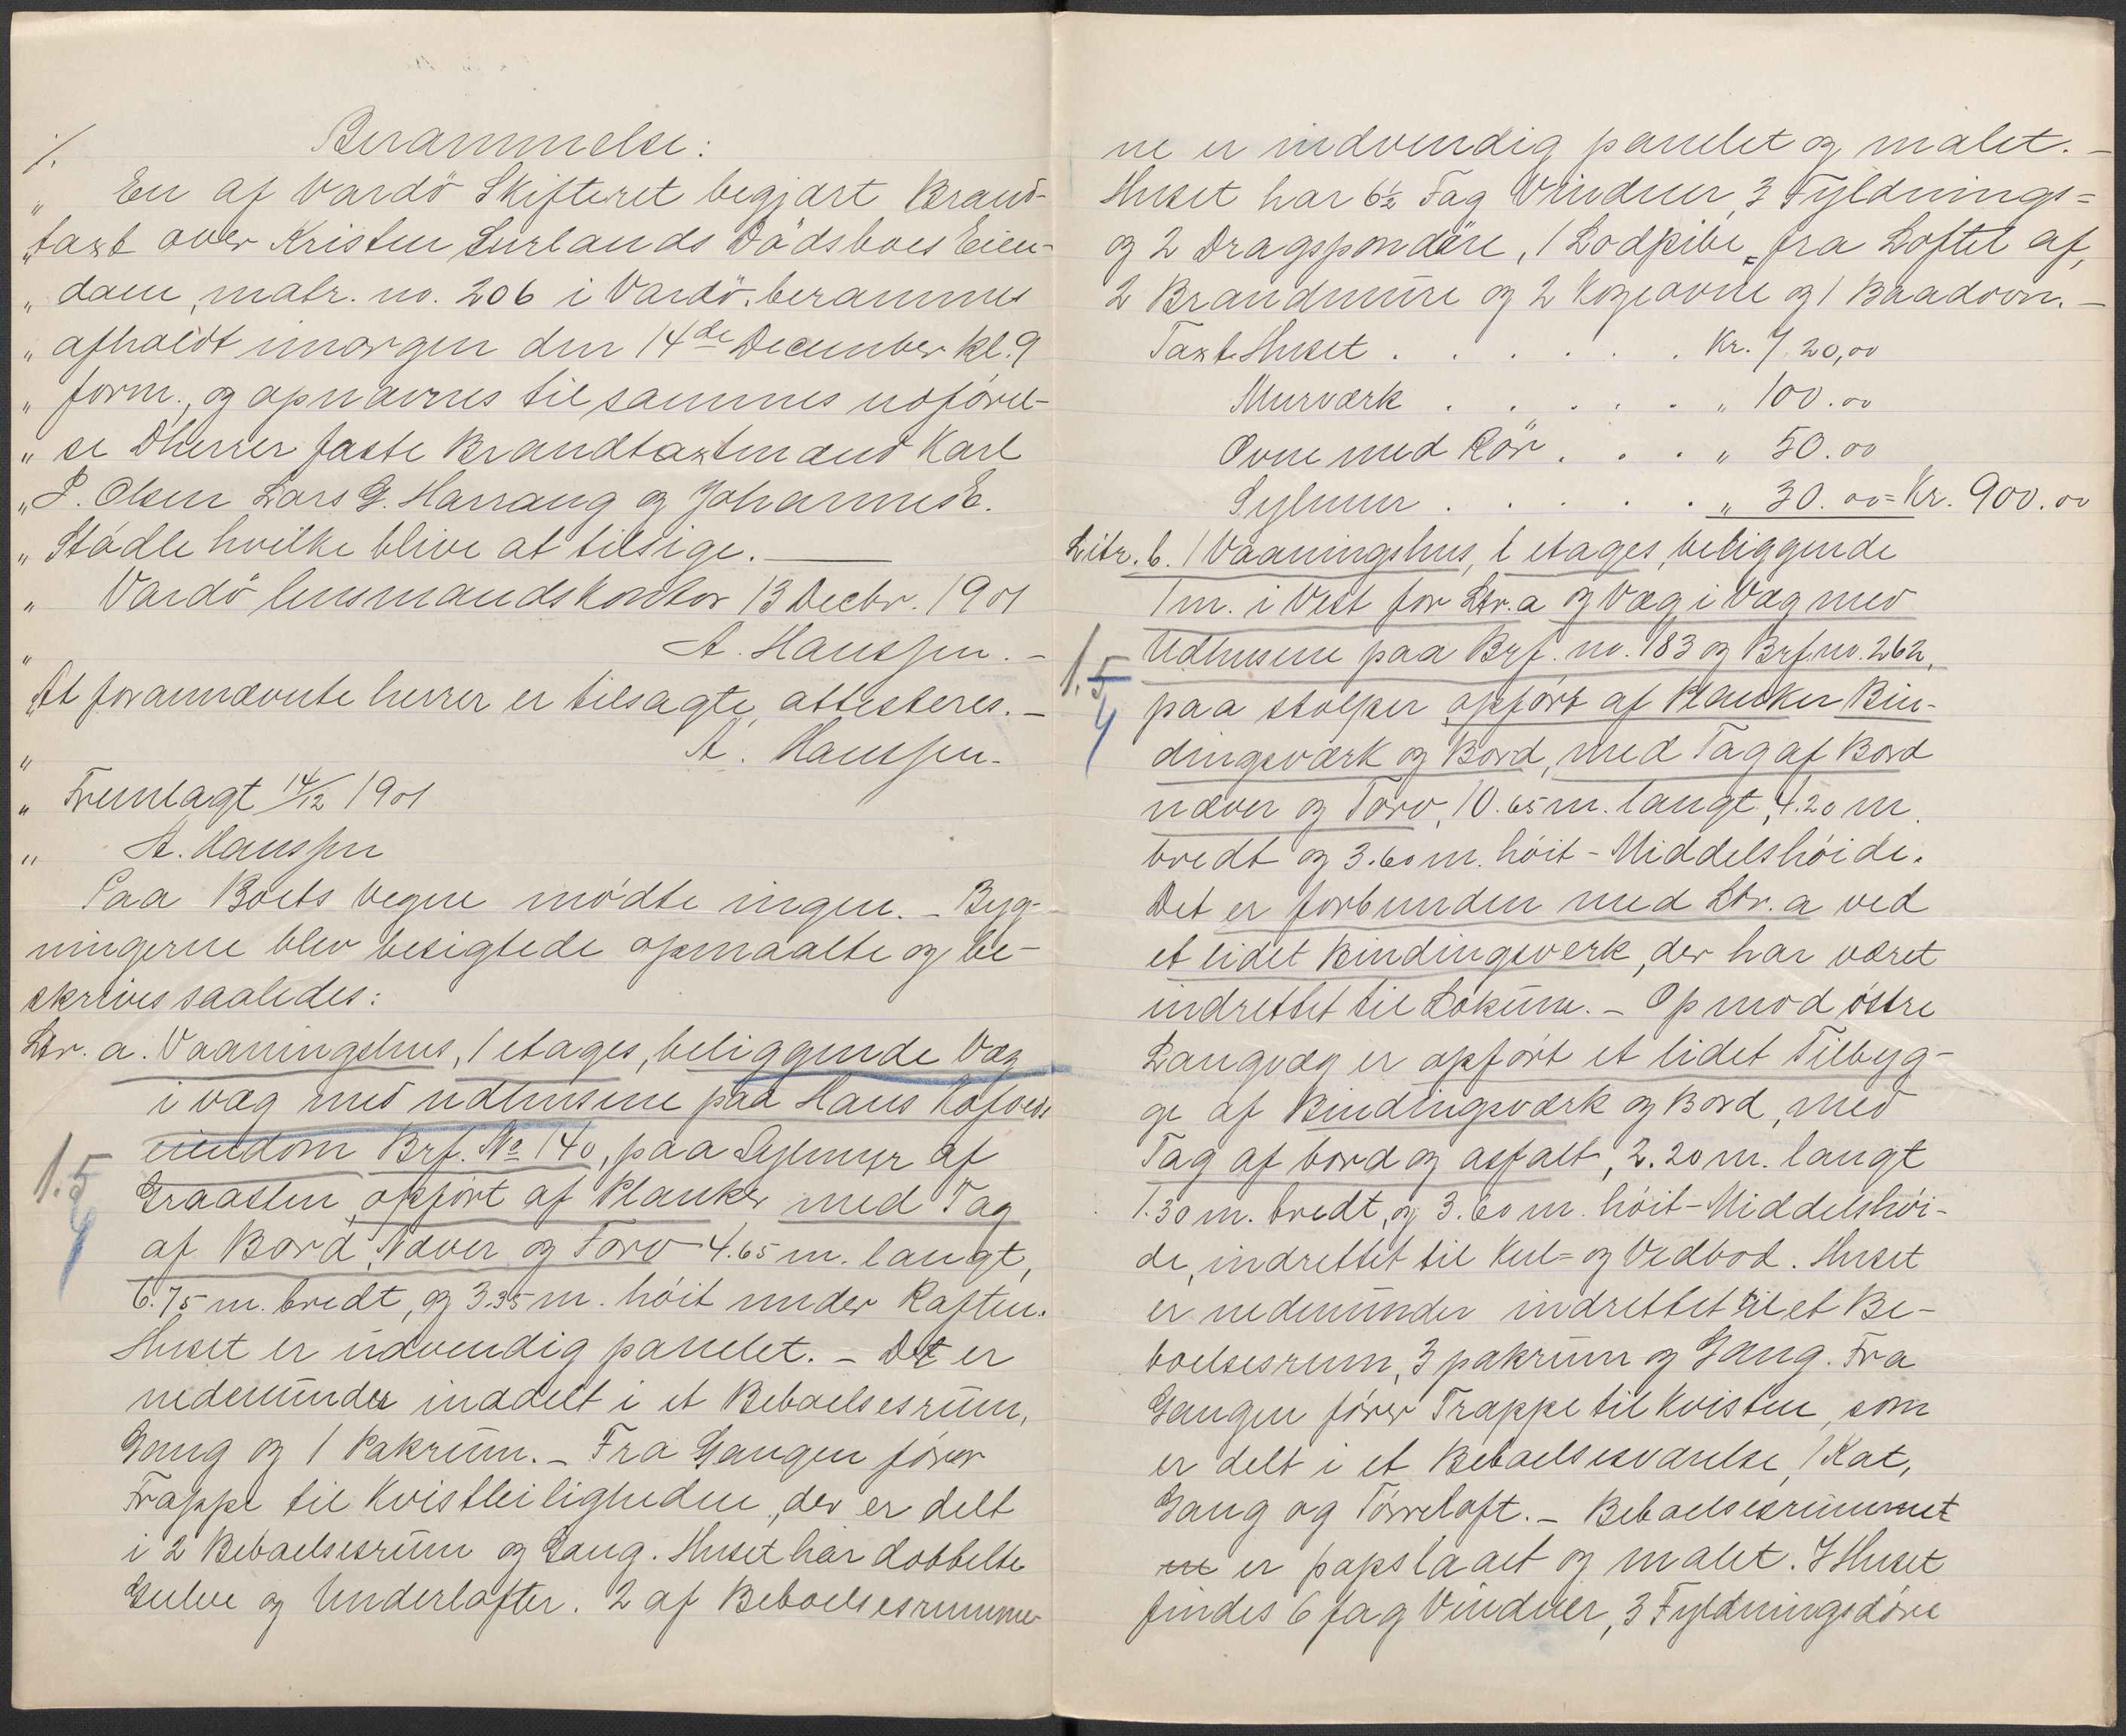 Berammelse:
./.
„ En af Vardö Skifteret begjært Brand-
„ taxt over Kristen Surlands Dödsboes Eien-
„ dom, matr. no. 206 i Vardö, berammes
„ afholdt imorgen den 14de December kl. 9
„ form., og opnævnes til sammes udførel-
„ se Dherrer faste Brandtaxtmænd Karl
„ P. Olsen Lars G. Harrang og Johannes E.
„ Stødle hvilke blive at tilsige. —
„ Vardö lensmandskontor 13 Decbr. 1901
„ A. Hanssen. —
„ At forannævnte herrer er tilsagte, attesteres. —
„ A. Hanssen.
„ Fremlagt 14/12 1901
„ A. Hanssen
Paa Boets vegne mødte ingen. — Byg-
ningerne blev besigtede opmaalte og be-
skrives saaledes:
Ltr. a. Vaaningshus, 1 etages, beliggende Væg
i væg med udhusene paa Hans Kofoeds
eiendom Brf. No 140, paa Sylmyr af
1.5
4
Graasten, opført af Planker med Tag
af Bord, Næver og Torv 4.65 m. langt,
6.75 m. bredt, og 3.35 m. høit under Raften.
Huset er udvendig panelet. — Det er
nedenunder inddelt i et Beboelsesrum,
Gang og 1 Pakrum. — Fra Gangen fører
Trappe til Kvistleiligheden, der er delt
i 2 Beboelsesrum og Gang. Huset har dobbelte
Gulve og Underlofter. 2 af Beboelsesrumme-
ne er indvendig panelet og malet. —
Huset har 6½ Fag Vinduer, 3 Fyldnings=
og 2 Dragspondöre, 1 Lodpibe fra Loftet af,
2 Brandmure og 2 Kogeovne og 1 Baadovn. —
Taxt Huset . . . . . . Kr. 720,00
Murværk . . . . . „ 100.00
Ovne med Rör . . . „ 50.00
Sylmur . . . . . „ 30.00 = Kr. 900.00
Litr. b. 1 Vaaningshus, 1 etages, beliggende
1 m. i Vest for Ltr. a og Væg i Væg med
Udhusene paa Brf. no. 183 og Brf. no. 262,
1.5
4
paa stolper opført af Planker Bin-
dingsværk og Bord, med Tag af Bord
næver og Torv, 10.65 m. langt, 4.20 m.
bredt og 3.60 m. høit - Middelshøide.
Det er forbunden med Ltr. a ved
et lidet Bindingsverk, der har været
indrettet til Lokum. — Op mod østre
Langvæg er opført et lidet Tilbyg-
ge af Bindingsværk og Bord, med
Tag af bord og asfalt, 2.20 m. langt
1.30 m. bredt, og 3.60 m. høit - Middelshøi-
de, indrettet til Kul= og Vedbod. Huset
er nedenunder indrettet til et Be-
boelsesrum, 3 pakrum og Gang. Fra
Gangen fører Trappe til Kvisten, som
er delt i et Beboelsesværelse, 1 Kat,
Gang og Tørreloft. — Beboelsesrummet
ne er papslaaet og malet. I Huset
findes 6 fag Vinduer, 3 Fyldningsdøre